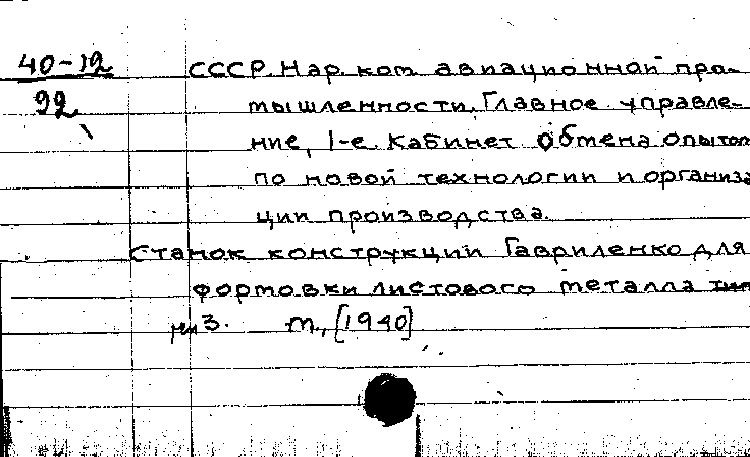 40-12
92
СССР. Нар. ком. авиационной про-
мышленности. Главное управле-
ние, 1-е. Кабинет обмена опытом
по новой технологии и организа
ции производства.
Станок конструкции Гавриленко для
формовки листового металла тип
3. М., [1940]